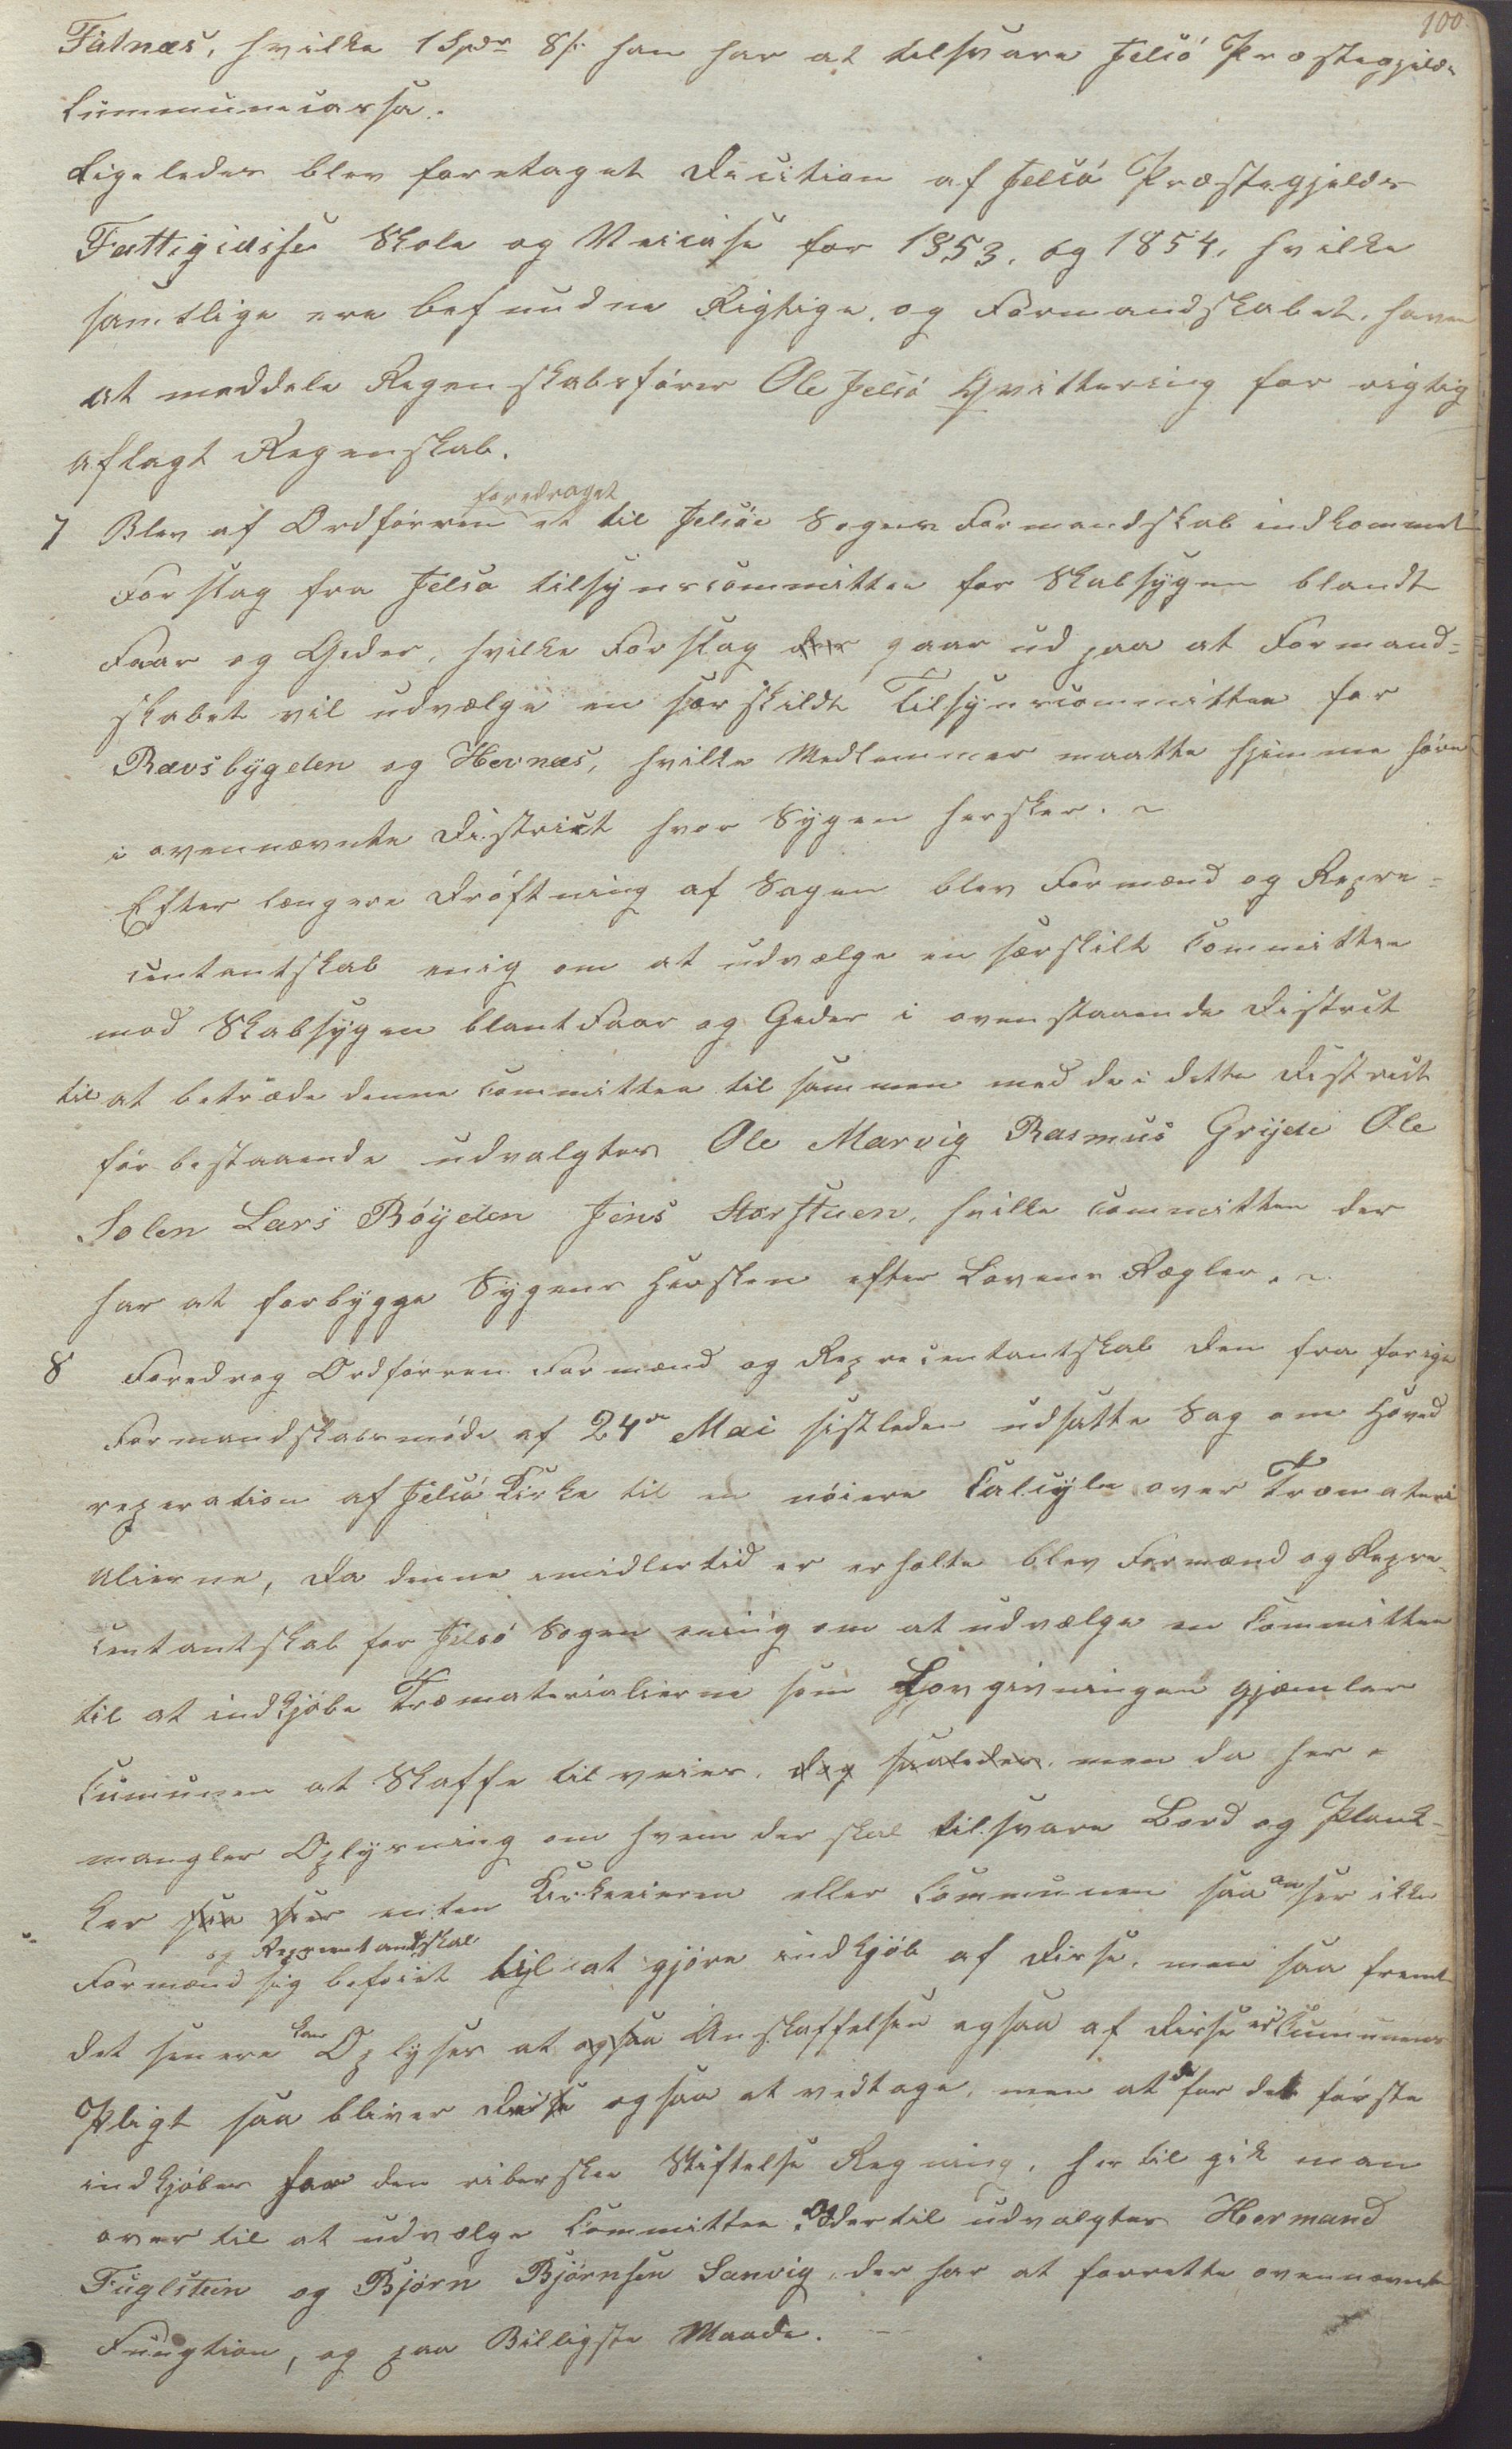 100.
Fatnæs, hvilke 1 Spdr 8 s. han har at tilsvare Jelsö Præstegjelds
Communecassa.
Ligeledes blev foretaget Decition af Jelsö Præstegjelds
Fattigcasse Skole og Veicasse for 1853. og 1854, hvilke
samtlige ere befundne Rigtige, og Formandskabet, haver
at meddele Regenskabsförer Ole Jelsö Qvittering for rigtig
aflagt Regenskab.
7 Blev af Ordförren foredraget et til Jelsöe Sogns Formandskab indkommet
Forslag fra Jelsø tilsynscommittee for Skabsygen blandt
Faar og Geder, hvilke Forslag der gaar ud paa at Formand=
skabet vil udvælge en særskildt Tilsynscommittee for
Rævsbygden og Hevnæs, hvilke Medlemmer maatte hjemme höre
i ovennævnte District hvor Sygen hersker. ~
Efter længere Dröftning af Sagen blev Formænd og Repre=
centantskab enig om at udvælge en særskilt Committee
mod Skabsygen blant Faar og Geder i ovenstaaende District
til at betræde denne committee til sammen med de i dette District
för bestaaende udvalgtes Ole Marvig Rasmus Gryde Ole
Solen Lars Böyden Jens Storstuen, hvilke committee der
har at forbygge Sygens Hersken efter Lovens Regler. ~
8 Foredrog Ordförren Formænd og Reprecentantskab den fra forrige
Formandskabsmöde af 24de Mai sistleden udsatte Sag om Hoved
reperation af Jelsö Kirke til en nöiere Calcyle over Træmateri
alierne, Da denne imidlertid er erholte blev Formænd og Repre=
centantskab for Jelsö Sogen eniig om at udvælge en Committee
til at indkjöbe Træmaterialierne som Lovgivningen gjæmler
Cumunen at Skaffe tilveies, dog saaledes, men da her
mangler Oplysning om hvem der skal tilsvare Bord og Plank=
ker saa ser enten Kirkeeieren eller Communen saa an ser ikke
Formænd og Reprecentantskab sig beföiet til at gjöre indkjöb af Disse, men saa fremt
det senere kan Oplyses at ogsaa Anskaffelsen ogsaa af Disse er Cumunens
Pligt saa bliver Disse ogsaa at vedtage, men at de for det förste
indkjöbes for den riberske Stiftelse Regning, her til gik man
over til at udvælge Committee. Og dertil udvalgtes Hermand
Fuglsteen og Björn Björnsen Sanvig, der har at forrette ovennævnte
Fungtion, og paa Billigste Maade. —